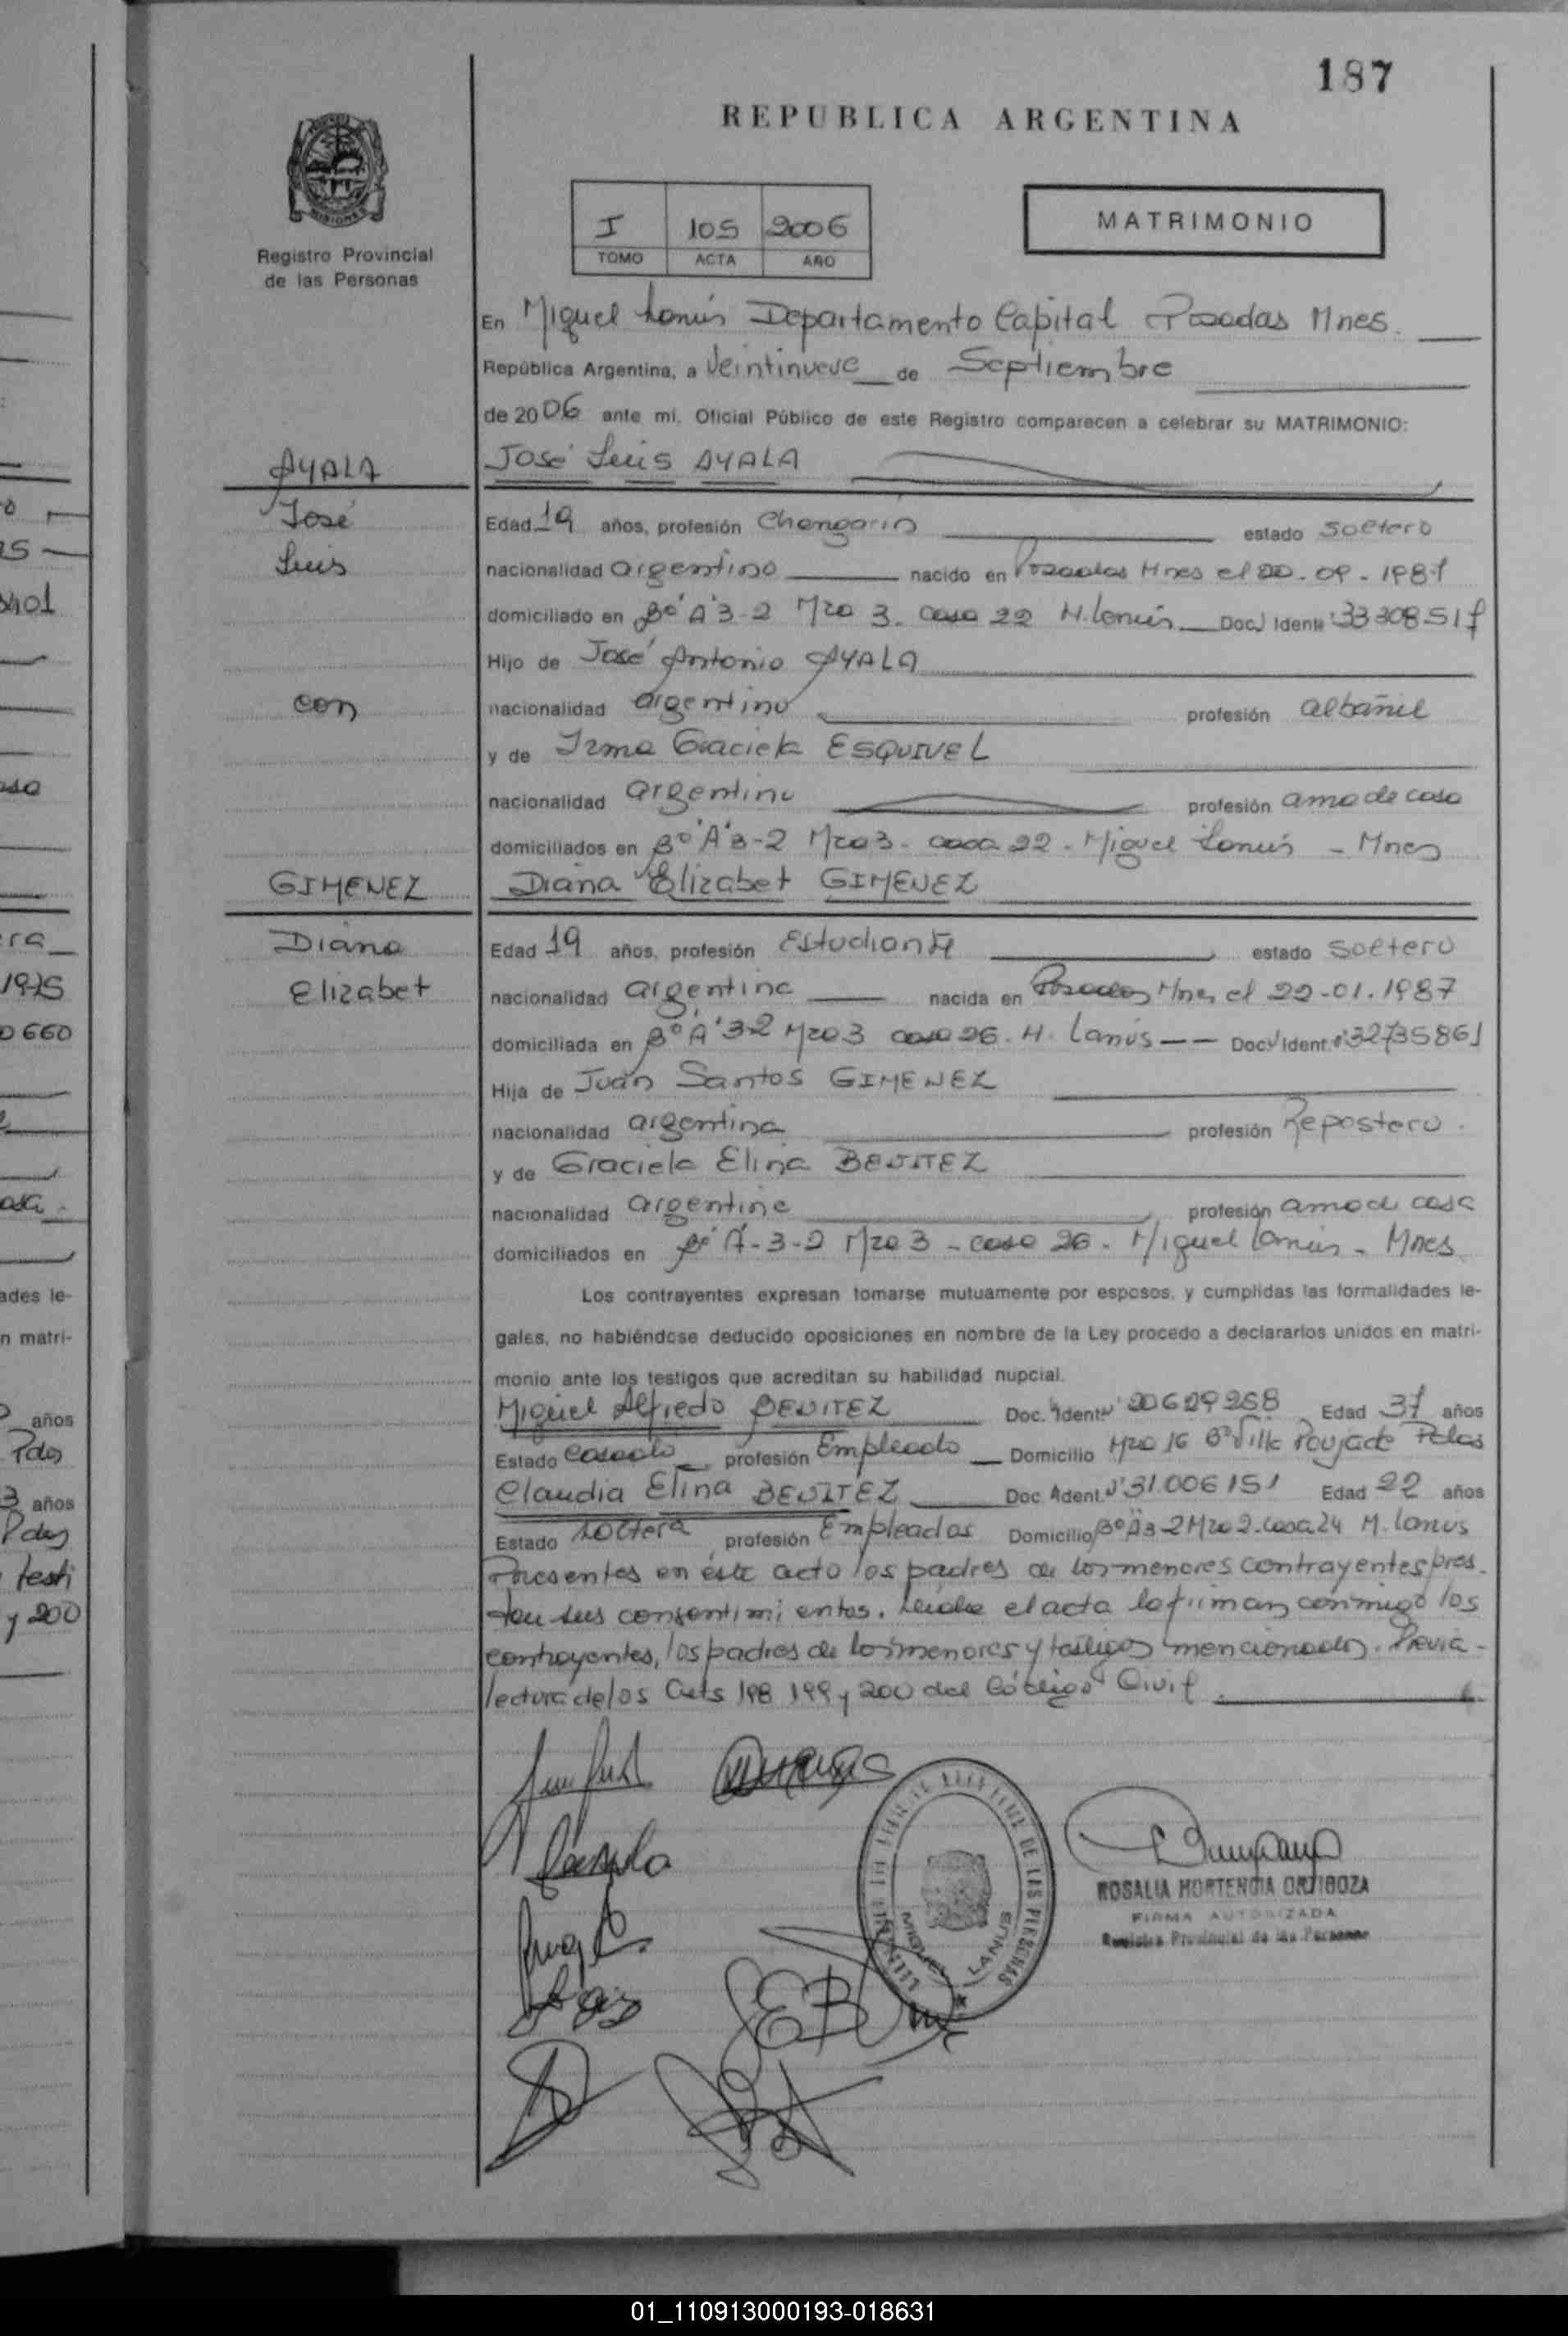 187
REPUBLICA ARGENTINA
MISIONES
Registro Provincial
de las Personas
I 105 2006
TOMO ACTA AÑO
MATRIMONIO
En Miguel Lanús Departamento Capital Posadas Mnes.
República Argentina, a Veintinueve de Septiembre
de 2006 ante mi, Oficial Público de este Registro comparecen a celebrar su MATRIMONIO:
AYALA
José Luis AYALA
José
Edad 19 años, profesión Changarin estado soltero
Luis
nacionalidad argentino nacido en Posadas Mnes el 20-09-1987
domiciliado en Bº "A"3-2 Mza 3. casa 22 M. Lanús Doc. Ident. 33308517
Hijo de José Antonio AYALA
con
nacionalidad argentino profesión albañil
y de Irma Graciela ESQUIVEL
nacionalidad argentina profesión ama de casa
domiciliados en Bº "A"3-2 Mza 3. casa 22. Miguel Lanús - Mnes
GIMENEZ
Diana Elizabet GIMENEZ
Diana
Edad 19 años, profesión Estudiante estado soltera
Elizabet
nacionalidad argentina nacida en Posadas Mnes el 22-01-1987
domiciliada en Bº "A" 3-2 Mza 3 casa 26. M. Lanús -- Doc. Ident. 32735861
Hija de Juan Santos GIMENEZ
nacionalidad argentina profesión Repostero.
y de Graciela Elina BENITEZ
nacionalidad argentina profesión ama de casa
domiciliados en Bº A-3-2 Mza 3 - casa 26. Miguel Lanús - Mnes
Los contrayentes expresan tomarse mutuamente por esposos, y cumplidas las formalidades le-
gales, no habiéndose deducido oposiciones en nombre de la Ley procedo a declararlos unidos en matri-
monio ante los testigos que acreditan su habilidad nupcial.
Miguel Alfredo BENITEZ Doc. Ident. 20629258 Edad 37 años
Estado casado profesión Empleado Domicilio Mza 16 Bº Villa Poujade Pdas
Claudia Elina BENITEZ Doc. Ident. 31.006151 Edad 22 años
Estado soltera profesión Empleada Domicilio Bº A3-2 Mza 2. casa 24 M. Lanus
Presentes en éste acto los padres de los menores contrayentes pres-
tan sus consentimientos. Leída el acta la firman conmigo los
contrayentes, los padres de los menores y testigos mencionados. Previa
lectura de los Arts 198 199 y 200 del Código Civil.
DE LAS PERSONAS
MIGUEL LANUS
ROSALIA HORTENCIA ORTIGOZA
FIRMA AUTORIZADA
Registro Provincial de las Personas
01_110913000193-018631